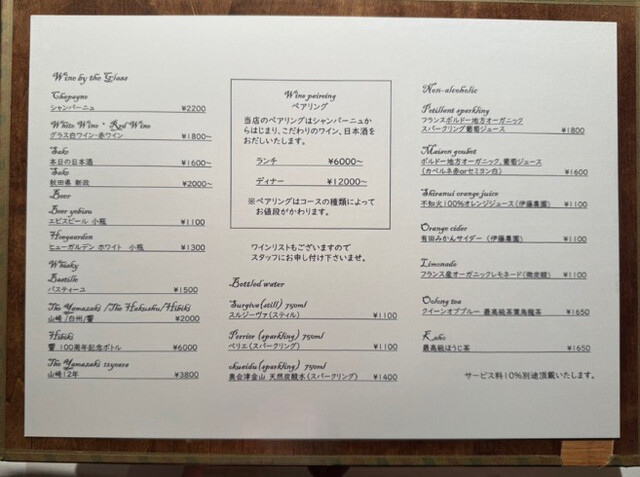 Wine by the Glass
Chapagne
シャンパーニュ ¥2200
White Wine・Red Wine
グラス白ワイン・赤ワイン ¥1800~
Sake
本日の日本酒 ¥1600~
Sake
秋田県 新政 ¥2000~
Beer
Beer yebisu
エビスビール 小瓶 ¥1100
Hoegaarden
ヒューガルデン ホワイト 小瓶 ¥1300
Whisky
Bastille
バスティーユ ¥1500
The Yamazaki /The Hakushu/Hibiki
山崎/白州/響 ¥2000
Hibiki
響 100周年記念ボトル ¥6000
The Yamazaki 12years
山崎12年 ¥3800
Wine paireing
ペアリング
当店のペアリングはシャンパーニュか
らはじまり、こだわりのワイン、日本酒を
おだしいたします。
ランチ ¥6000~
ディナー ¥12000~
※ペアリングはコースの種類によって
お値段がかわります。
ワインリストもございますので
スタッフにお申し付け下さいませ。
Bottled water
Surgiva(still) 750ml
スルジーヴァ(スティル) ¥1100
Perrier (sparkling) 750ml
ペリエ(スパークリング) ¥1100
okuaidu(sparkling) 750ml
奥会津金山 天然炭酸水(スパークリング) ¥1400
Non-alcoholic
Petillant sparkling
フランスボルドー地方オーガニック
スパークリング葡萄ジュース ¥1800
Maison goubet
ボルドー地方オーガニック。葡萄ジュース
(カベルネ赤orセミヨン白) ¥1600
Shiranui orange juice
不知火100%オレンジジュース(伊藤農園) ¥1100
Orange cider
有田みかんサイダー (伊藤農園) ¥1100
Limonade
フランス産オーガニックレモネード(微炭酸) ¥1100
Oolong tea
クイーンオブブルー 最高級茶葉烏龍茶 ¥1650
Kaho
最高級ほうじ茶 ¥1650
サービス料10%別途頂戴いたします。